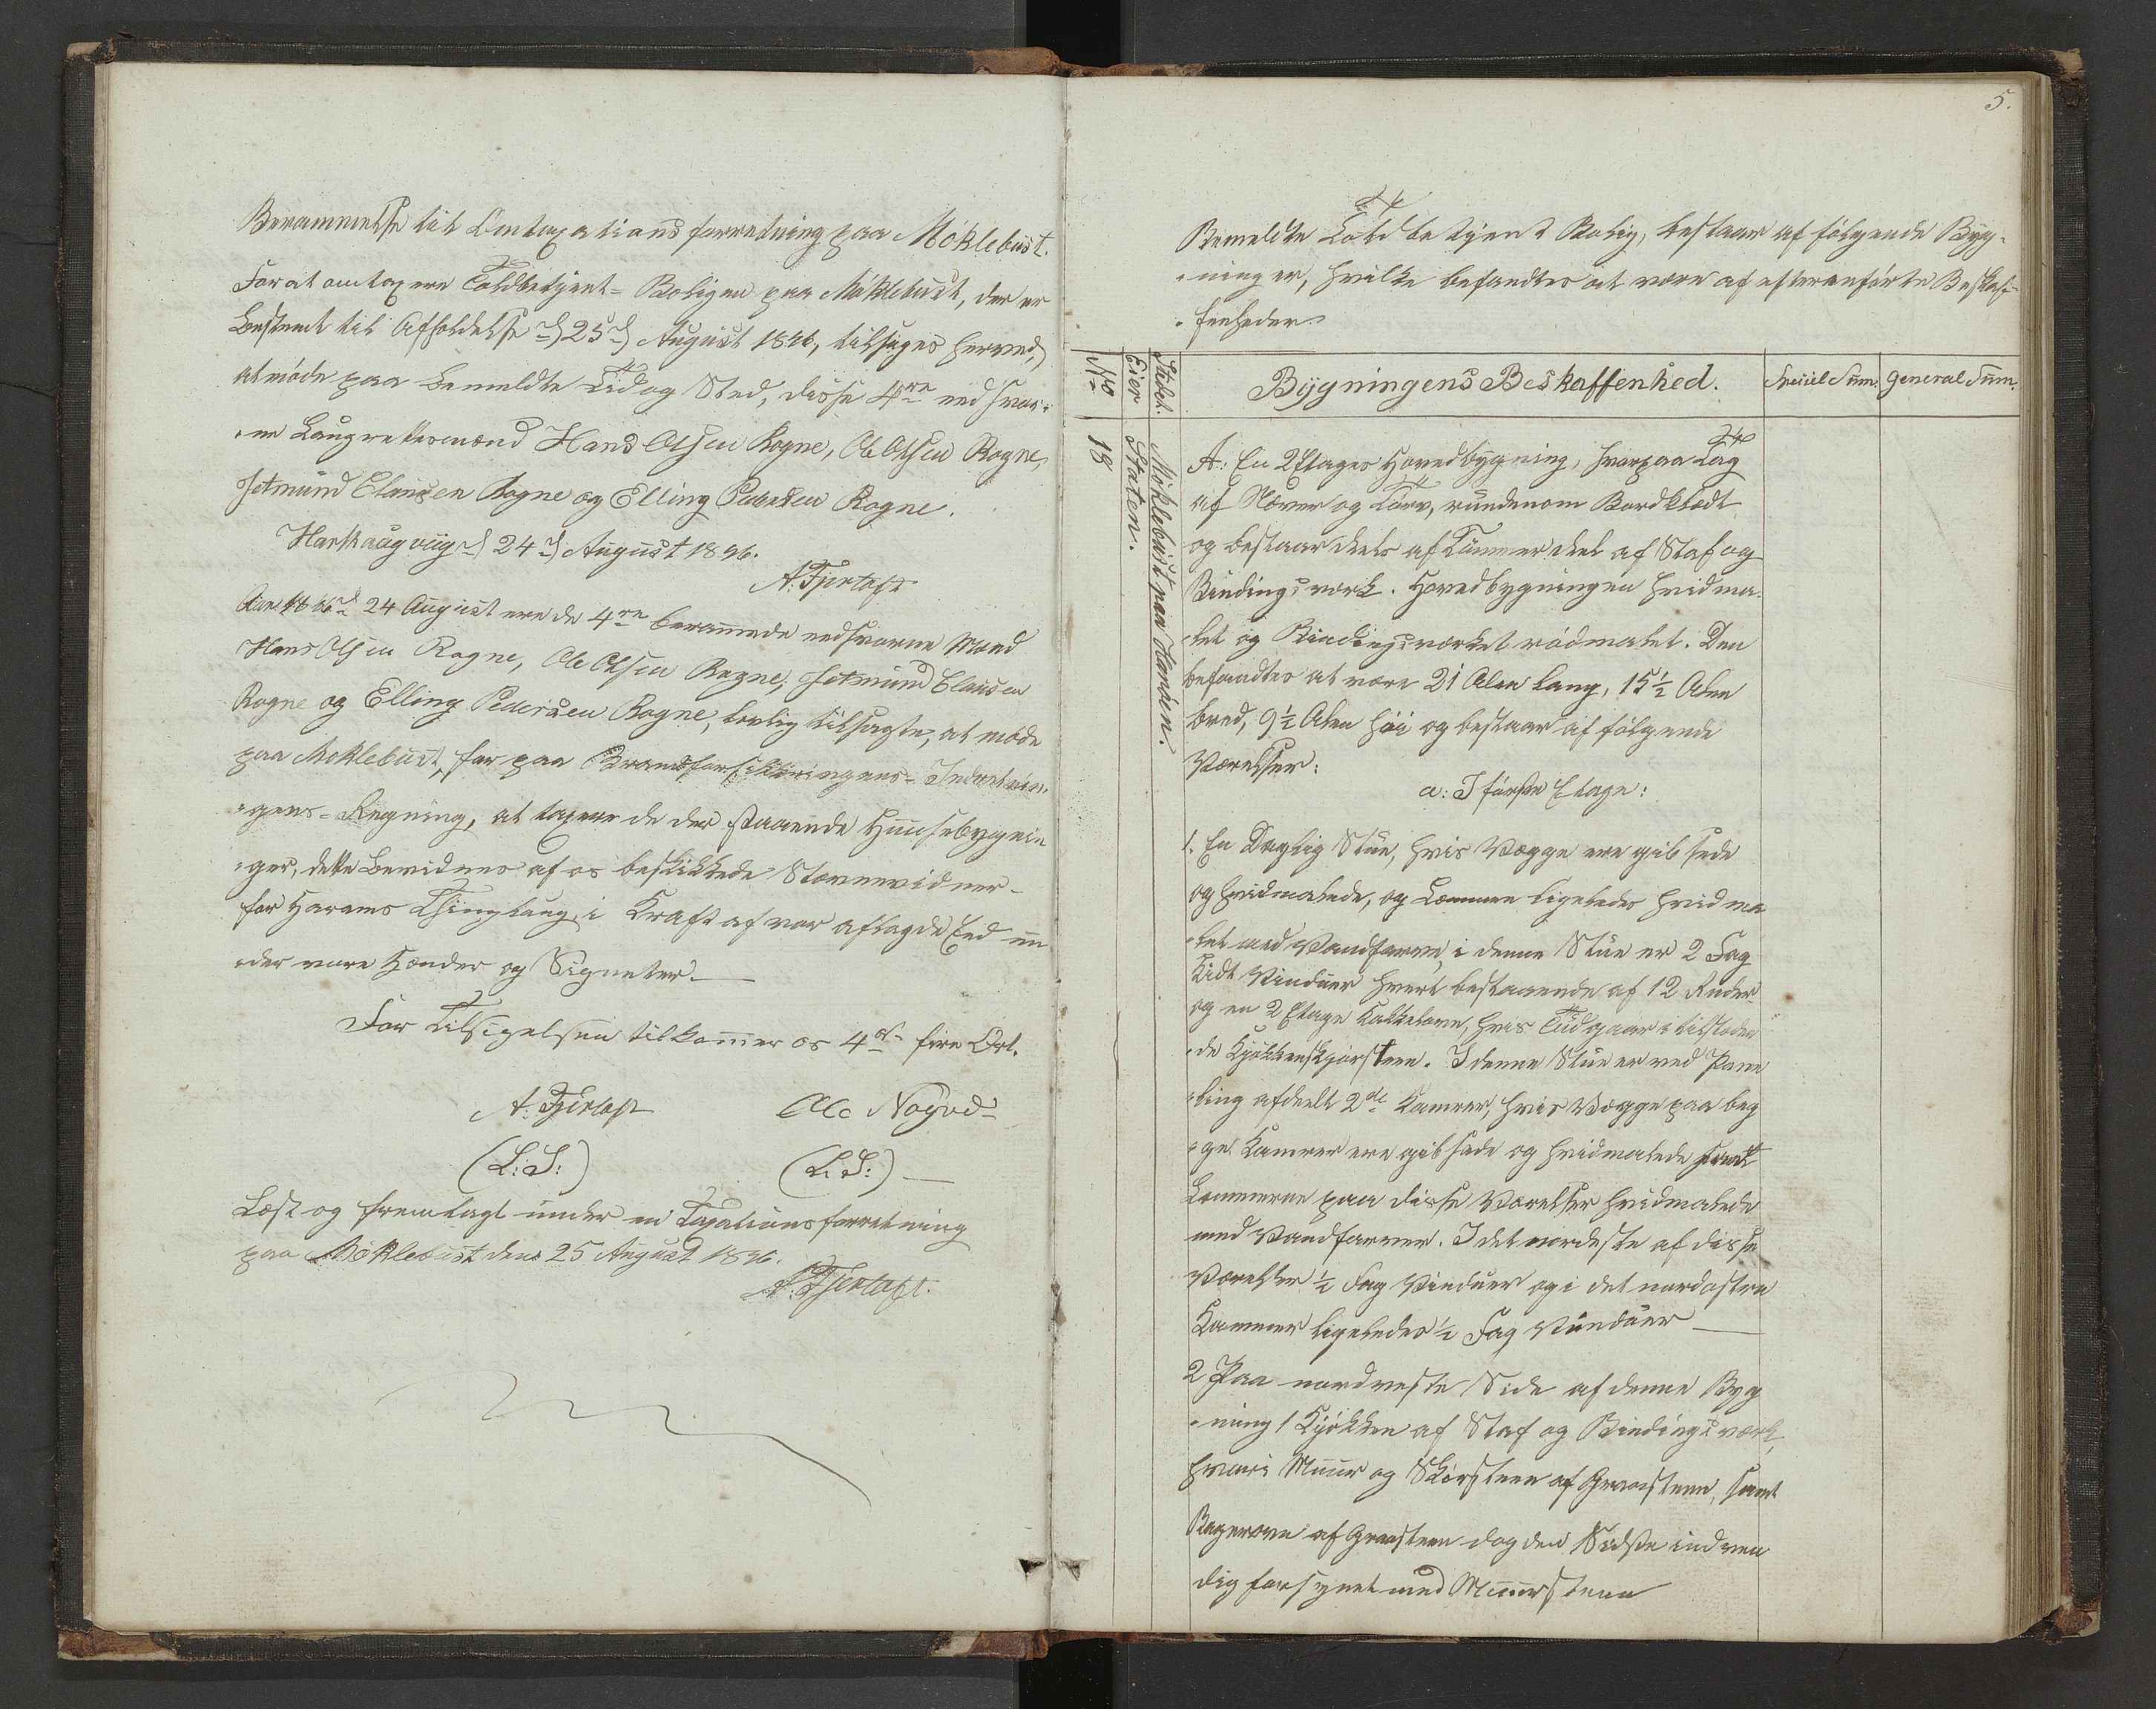 Berammelse til Omtaxationsforretning paa Möklebust.
For at omtaxere Toldbetjent-Boligen paa Möklebust, der er
bestemt til Afholdelse d 25 d August 1846, tilsiges herved,
at möde paa bemeldte Tid og Sted, disse 4re eedsvor-
ne Laugrettesmænd Hans Olsen Rogne, Ole Olsen Rogne,
Jetmund Clausen Rogne og Elling Pedersen Rogne.
Harhaugviig d 24 d August 1846.
A. Fjertoft
24 August ere de 4re berammede eedsvorne Mænd
Hans Olsen Rogne, Ole Olsen Rogne, Jetmund Clausen
Rogne og Elling Pedersen Rogne, lovlig tilsagte, at möde
paa Möklebust, for paa Brandforsikkringens-Indretnin-
gens-Regning, at taxere de der staaende Huusebygnin
ger, dette bevidnes af os beskikkede Stevnevidner
for Harams Thinglaug, i Kraft af vor aflagde Eed un
der vore Hænder og Signeter.
For Tilsigelsen tilkommer os 4 Ort fire Ort.
A. Fjertoft Ole Nogvad
(L:S:) (L:S:)
Læst og fremlagt under en Taxationsforretning
paa Möklebust den 25 August 1846.
A. Fjertoft.
5.
Bemeldte Toldbetjent Bolig, bestaar af fölgende Byg-
ninger, hvilke befandtes at være af efteranförte Beskaf-
fenheder.
No Eier Stedet. Bygningens Beskaffenhed. Speciel Sum. General Sum.
18
Staten.
Möklebust paa Haröen.
A: En 2 Etages Hovedbygning, hvorpaa Tag
af Næver og Törv, rundenom Bordklædt
og bestaar deels af Tömmer deel af Staf og
Bindingsværk. Hovedbygningen hvidma-
let og Bindingsværket rödmalet. Den
befandtes at være 21 Alen lang, 15½ Alen
bred, 9½ Alen höi og bestaar af fölgende
Værelser:
a: I förste Etage:
1. En Daglig Stue, hvis Vægge ere gibsede
og hvidmalede, og Lemmen ligeledes hvidma
let med Vandfarve, i denne Stue er 2 Fag
Vinduer hvert bestaaende af 12 Ruder
og en 2 Etage Kakkelovn, hvis Lud gaar i tilstöden
de Kjökkenskjorsteen. I denne Stue er ved Pane
ling afdeelt 2de Kamrer, hvis Vægge paa beg
ge Kamrer ere gibsede og hvidmalede samt
Lemmerne paa disse Værelser hvidmalede
med Vandfarver. I det nordeste af disse
Værelser ½ Fag Vinduer og i det nordostre
Kammer ligeledes ½ Fag Vinduer
2 Paa nordveste Side af denne Byg
ning 1 Kjökken af Staf og Bindingsværk,
hvori Muur og Skorsteen af Graasteen, samt
Bagerovn af Graasteen dog den Sidste indven
dig forsynet med Muursteen